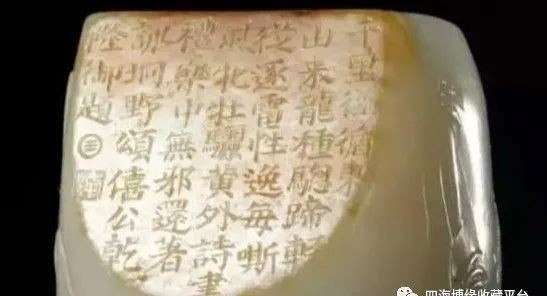 千里
山來龍種駒蹄輕
從逐電性逸每嘶
風牝牡驪黃外詩書
禮樂中無邪還著
訓坰野頌僖公乾
隆御題
四海博缘收藏平台